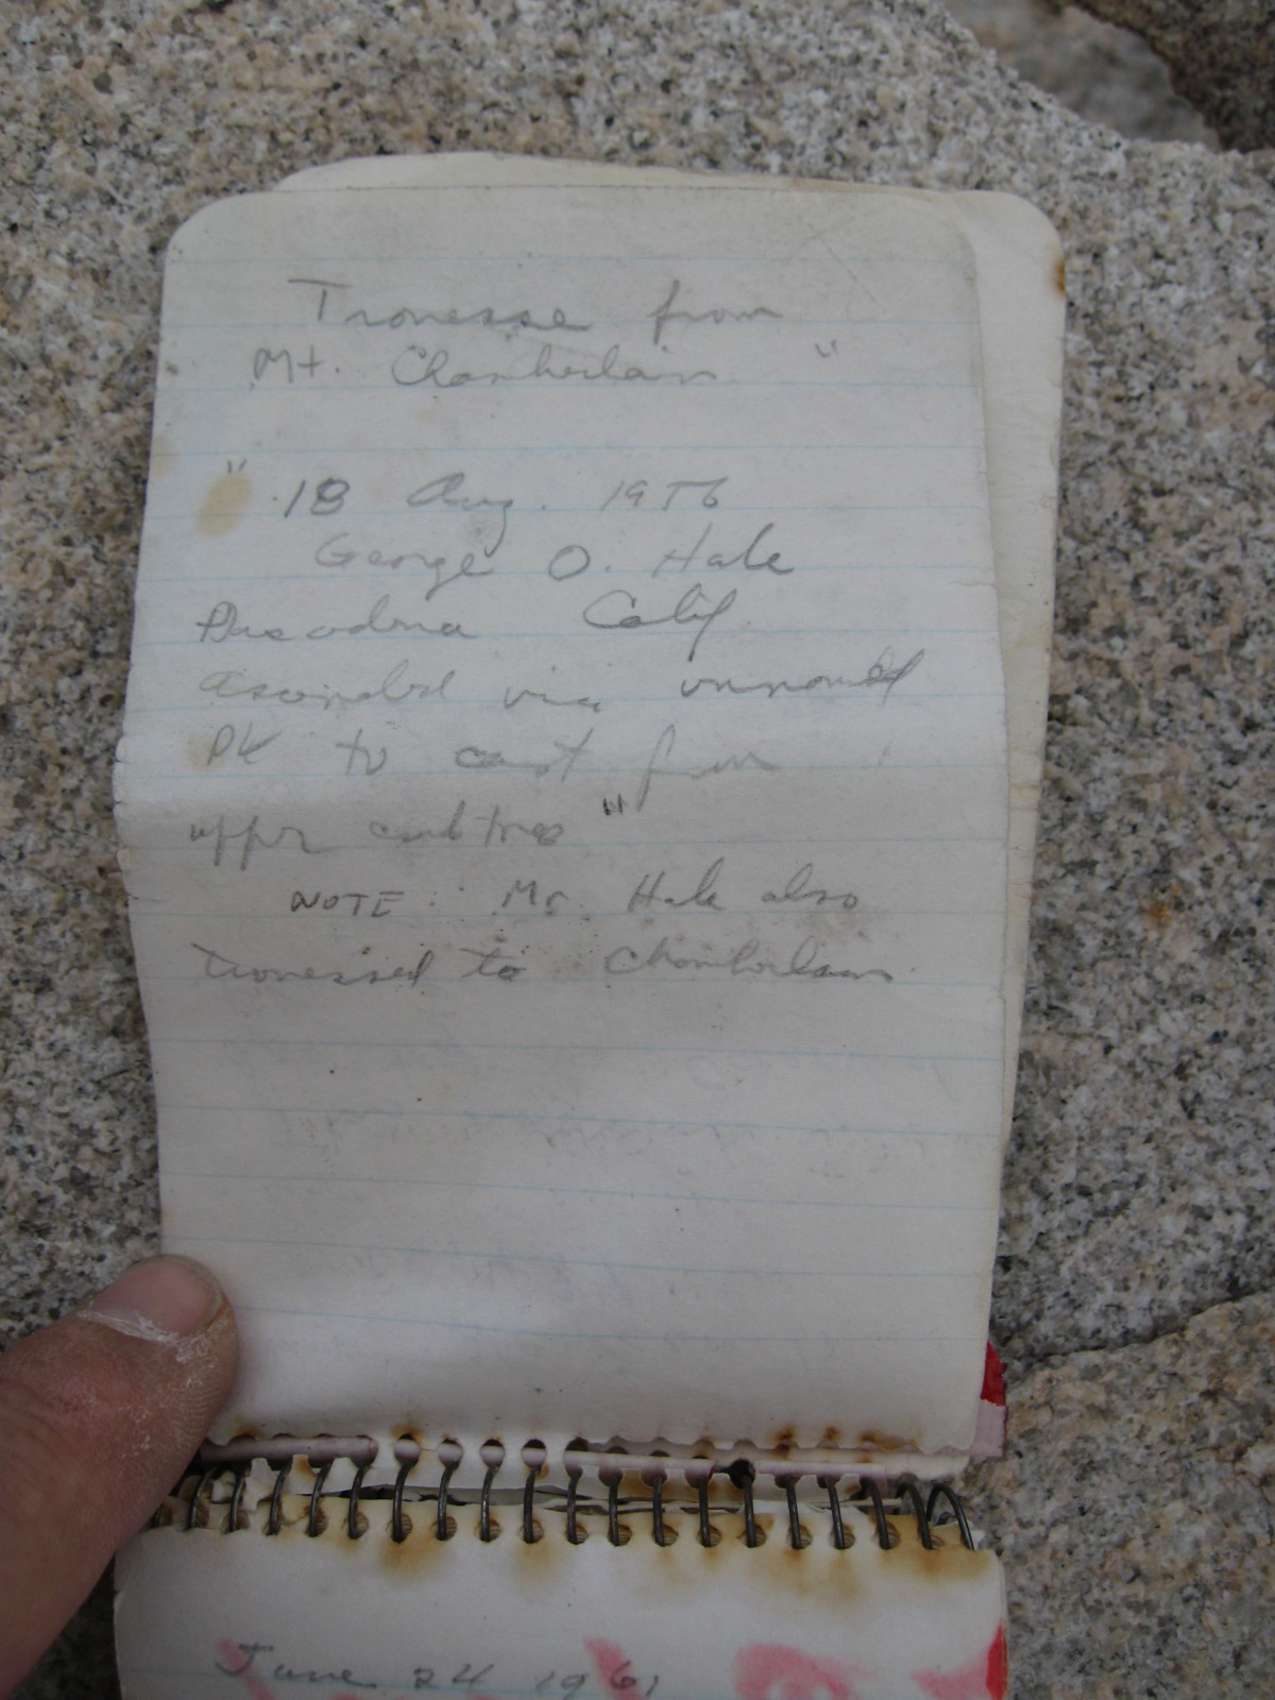 Traverse from
Mt. Chamberlain "
" 18 Aug. 1956
George O. Hale
Pasadena Calif.
ascended via unnamed
PK to east from
upper "
NOTE: Mr. Hale also
traversed to Chamberlain.
June 24 1961